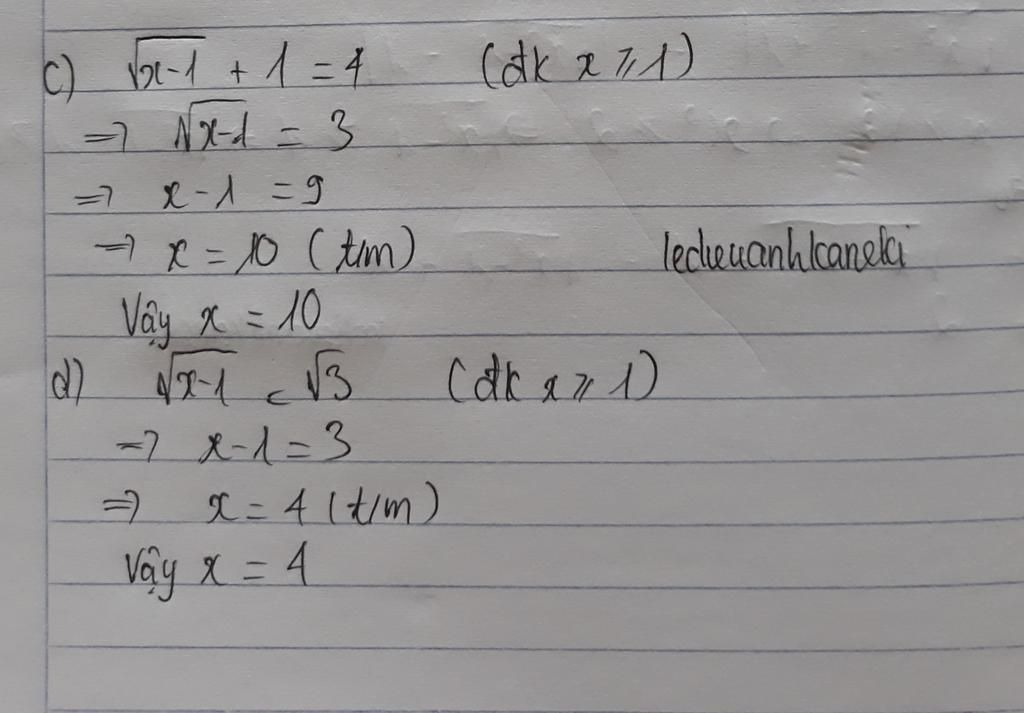 c) √(x-1) + 1 = 4 (đk x ⩾ 1)
=> √(x-1) = 3
=> x - 1 = 9
=> x = 10 (t/m)
lecheuanhkaneki
Vậy x = 10
d) √(x-1) = √3 (đk x ⩾ 1)
=> x - 1 = 3
=> x = 4 (t/m)
Vậy x = 4